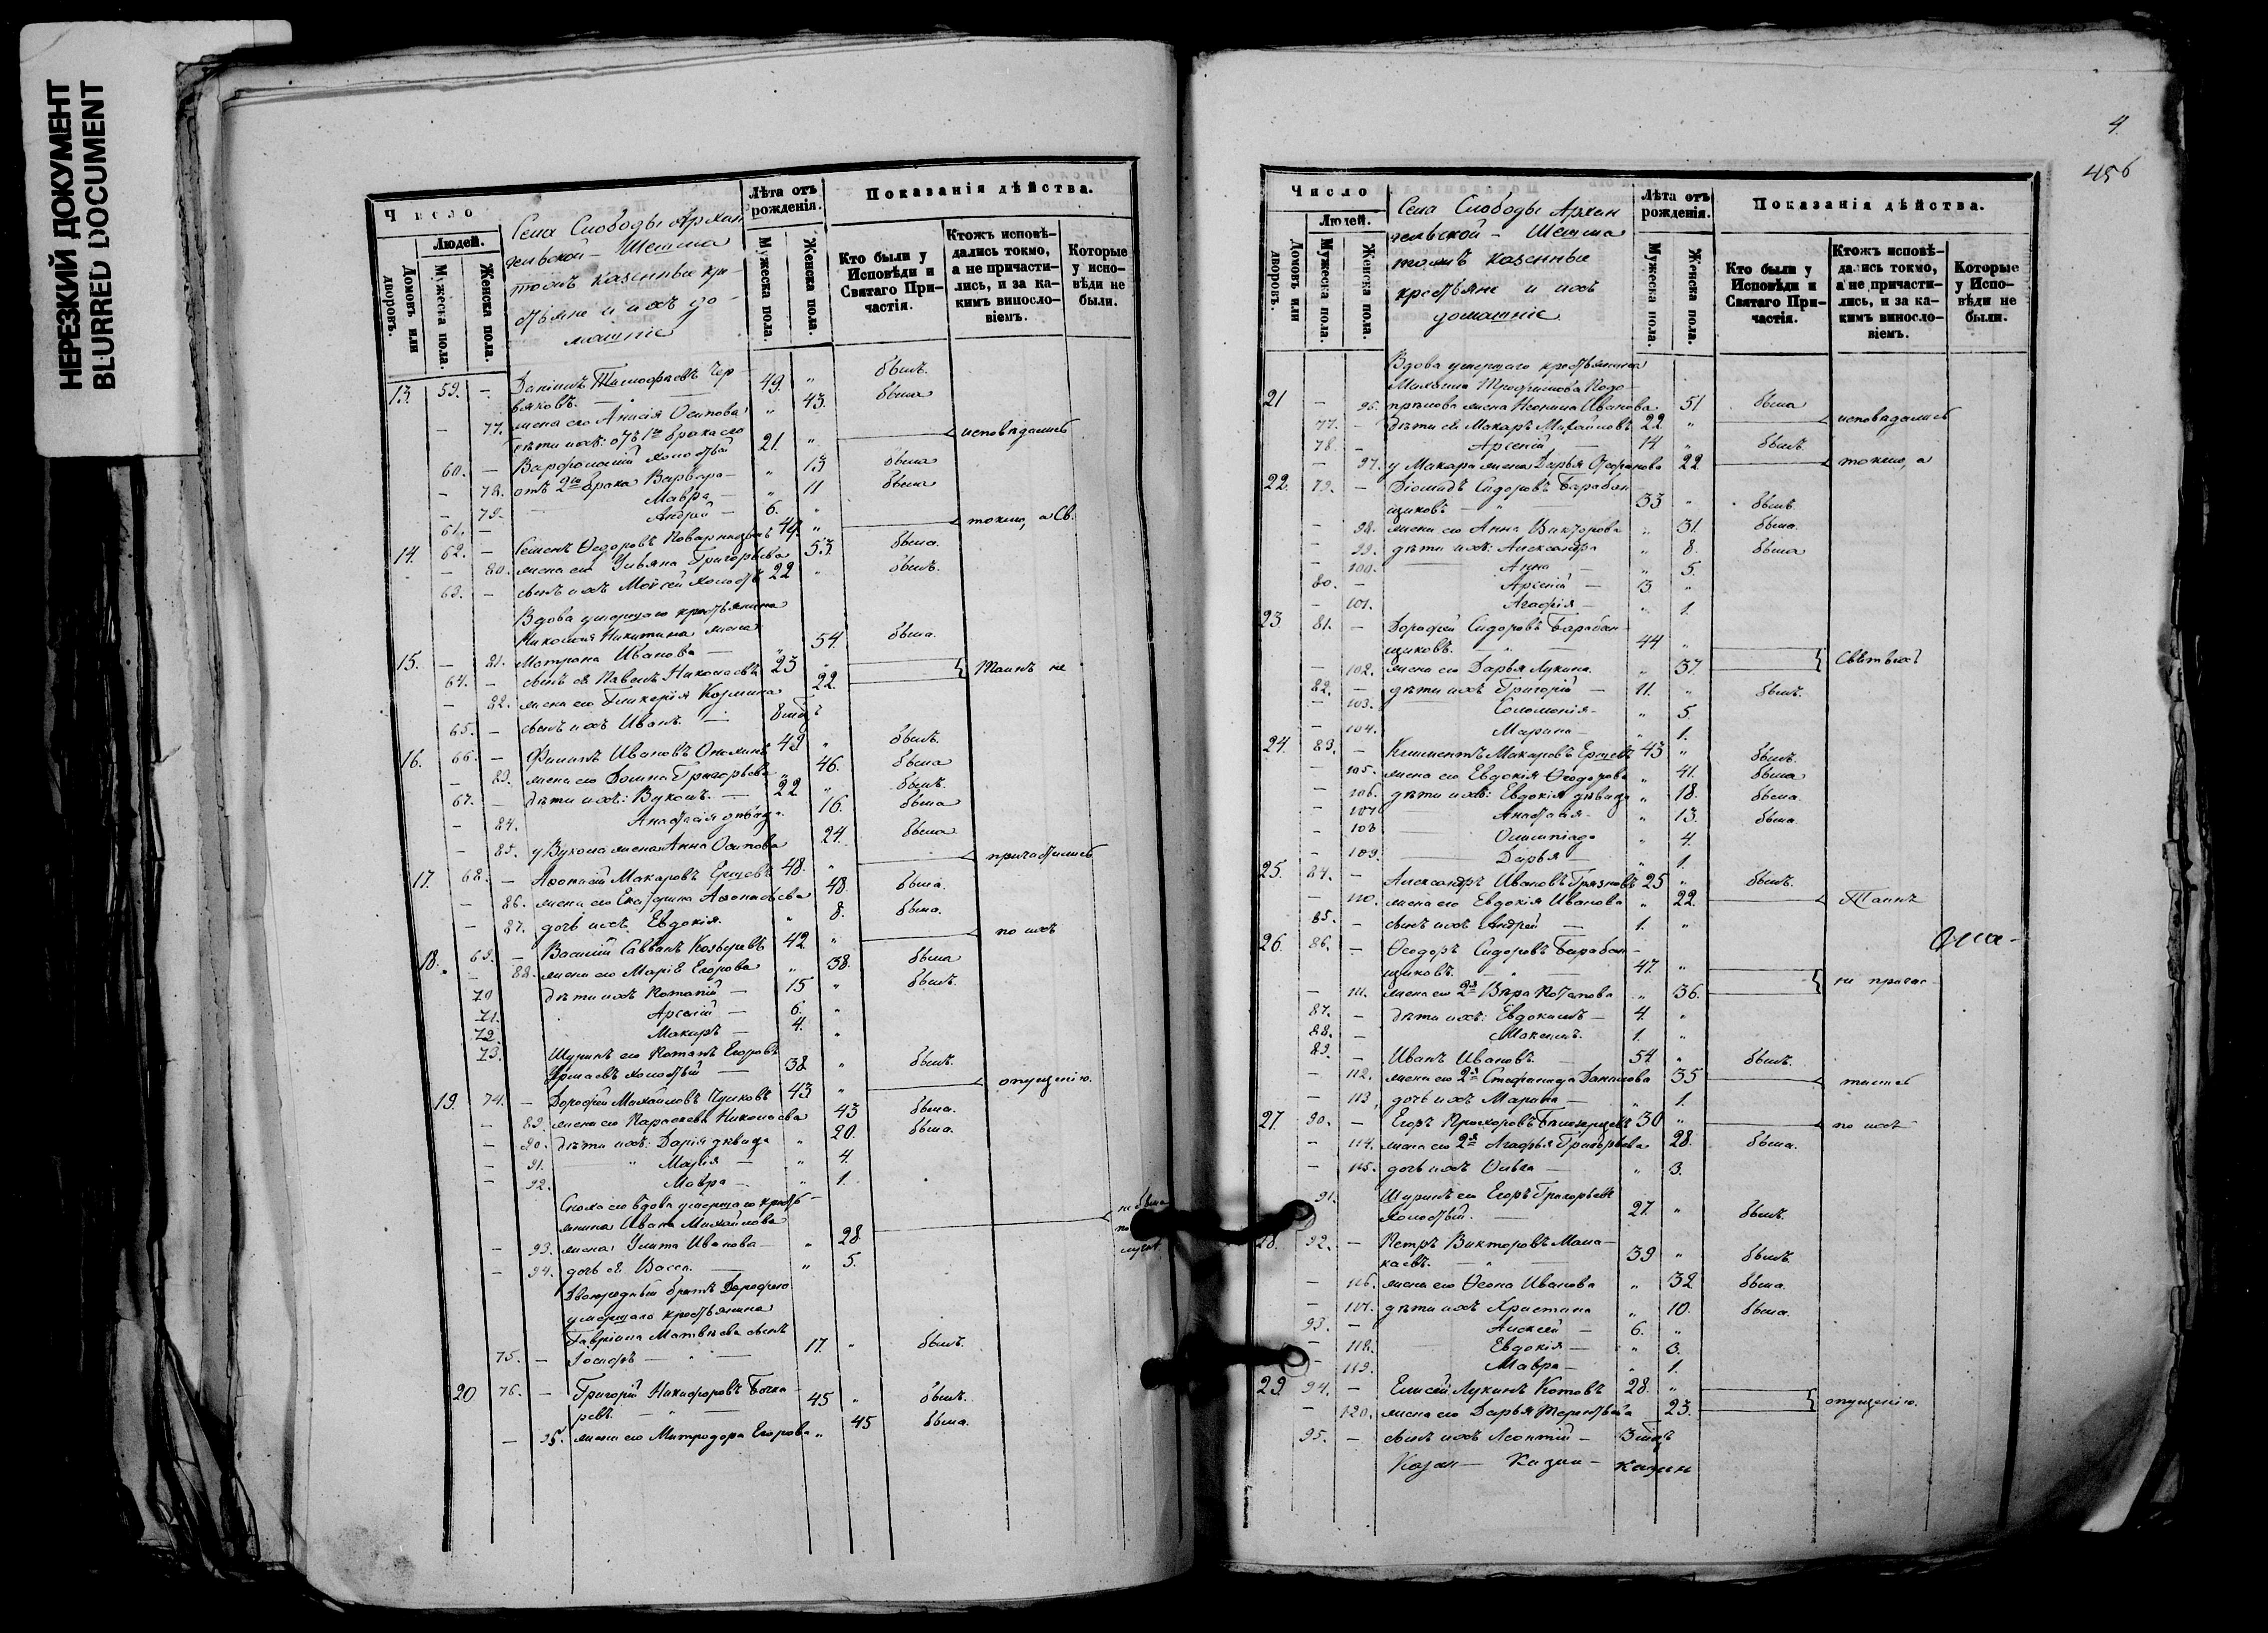 НЕРЕЗКИЙ ДОКУМЕНТ
BLURRED DOCUMENT
Число
Людей.
Домовъ или дворовъ.
Мужеска пола.
Женска пола.
Села Слободы Архан
гельской - Шешма
тожъ казенные кре-
стьяне и ихъ до-
машніе
Лѣта отъ рожденія.
Мужеска пола.
Женска пола.
Показанія дѣйства.
Кто были у Исповѣди и Святаго Причастія.
Ктожъ исповѣдались токмо, а не причастились, и за какимъ винословіемъ.
Которые у исповѣди не были.
13. 59. - Даніилъ Тимофѣевъ Чер-
вяковъ. 49. " былъ.
- 77. жена его Анисія Осипова " 43. была
дѣти ихъ: отъ 1го брака его
60. - Варфоломей холостый 21. " исповѣдались
- 78. отъ 2го брака Варвара - " 13 была
- 79. Мавра - " 11 была
61. - Андрей - 6. "
14. 62. - Семенъ Ѳедоровъ 49. " токмо, а Св.
- 80. жена его Ульяна Григорьева 53. была.
63. - сынъ ихъ Моисей холостъ 22 " былъ.
Вдова умершаго крестьянина
Николая Никитина жена
15. - 81. Матрона Иванова - " 54. была.
64. - сынъ ея Павелъ Николаевъ 23 " Таинъ не
- 82. жена его Гликерія Козмина 22.
65. - сынъ ихъ Иванъ. - 8 мцъ
16. 66. - Филипъ Ивановъ 49 " былъ.
- 83. жена его Домна Григорьева " 46. была
67. - дѣти ихъ: Вуколъ. - 22 " былъ.
- 84. Анастасія дѣвица. 16. была
- 85. у Вукола жена Анна Осипова 24. была
17. 68. - Аѳонасій Макаровъ Ершевъ 48. " причастились
- 86. жена его Екатерина Аѳонасьева 48. была.
- 87. дочь ихъ Евдокія. " 8. была.
18. 69. - Василій Саввинъ Козыревъ 42 " по ихъ
- 88. жена его Марія Егорова " 38. была
70 дѣти ихъ Потапій - 15 " былъ.
71. Арсеній - 6. "
72. Макаръ - 4. "
73. Шуринъ его Потапъ Егоровъ
холостый - 38 " былъ.
19. 74. - Дорофей Михайловъ Чулковъ 43. " опущенію.
- 89. жена его Параскева Николаева 43 была.
- 90. дѣти ихъ: Дарія дѣвица " 20. была.
- 91. " Марія - " 4.
- 92. Мавра - " 1.
Сноха его вдова умершаго кресть-
янина Ивана Михайлова
- 93. жена Улита Иванова " 28. не была
- 94. дочь ея Васса. - " 5.
Двоюродный братъ Дорофею
умершаго крестьянина
Гавріила Матвѣева сынъ
75. - Іосифъ - " 17. " былъ.
20 76. - Григорій Никифоровъ Бочка
ревъ. - " 45 " былъ.
- 95. жена его Митродора Егорова " 45 была.
4
456
Число
Людей.
Домовъ или дворовъ.
Мужеска пола.
Женска пола.
Села Слободы Архан
гельской - Шешма
тожъ казенные
крестьяне и ихъ
домашніе
Лѣта отъ рожденія.
Мужеска пола.
Женска пола.
Показанія дѣйства.
Кто были у Исповѣди и Святаго Причастія.
Ктожъ исповѣдались токмо, а не причастились, и за какимъ винословіемъ.
Которые у Исповѣди не были.
Вдова умершаго крестьянина
Михаила Трофимова Подо-
21 - 96. прѣлова жена Неонила Иванова 51 была
77. - дѣти ея Макаръ Михайловъ 22. " исповѣдались
78. - Арсеній 14 " былъ.
- 97. у Макара жена Дарья Стефанова 22 токмо, а
22. 79. - Діомидъ Сидоровъ Барабан
щиковъ - " 33 " былъ.
- 98. жена его Анна Викторова " 31. была.
- 99. дѣти ихъ: Александра " 8. была
- 100. Анна - " 5.
80. - Арсеній - 3. "
- 101. Агафія - " 1.
23 81. - Дорофей Сидоровъ Барабан-
щиковъ. - " 44 " Святыхъ
- 102. жена его Дарья Лукина. " 37.
82. - дѣти ихъ Григорій - 11. " былъ.
- 103. Соломонія - " 5.
- 104. Марина - " 1.
24. 83. - Климентъ Макаровъ Ершевъ 43 " былъ.
- 105. жена его Евдокія Ѳеодорова " 41. была
- 106. дѣти ихъ: Евдокія дѣвица " 18. была.
- 107. Анастасія - " 13. была.
- 108 Олимпіада " 4.
- 109. Дарья - " 1.
25. 84. - Александръ Ивановъ Грязновъ 25 " былъ.
- 110. жена его Евдокія Иванова " 22. Таинъ
85. - сынъ ихъ Андрей - 1. "
26. 86. - Ѳеодоръ Сидоровъ Барабан-
щиковъ. - " 47. " не причас-
- 111. жена его 2я Вѣра Потапова " 36.
87. - дѣти ихъ: Евдокимъ - 4. "
88. - Максимъ. 1. "
89. - Иванъ Ивановъ. - 54. " былъ.
- 112. жена его 2я Стефанида Данилова 35 тились
- 113. дочь ихъ Марина - " 1.
27. 90. - Егоръ Прохоровъ 30 " по ихъ
- 114. жена его 2я Агафья Григорьева 28. была.
- 115. дочь ихъ Ѳекла - " 3.
91. Шуринъ его Егоръ Григорьевъ
холостый. - 27. " былъ.
28. 92. - Петръ Викторовъ Мала-
каевъ. - " 39 " былъ.
- 116. жена его Ѳеона Иванова " 32 была.
- 117. дѣти ихъ Христина " 10. была.
93. - Алексей - 6. "
- 118. Евдокія - " 3.
- 119. Мавра - " 1.
29. 94. - Елисей Лукинъ Котовъ 28. " опущенію.
- 120. жена его Дарья Терентьева 23.
95. - сынъ ихъ Леонтій - 3 мцъ